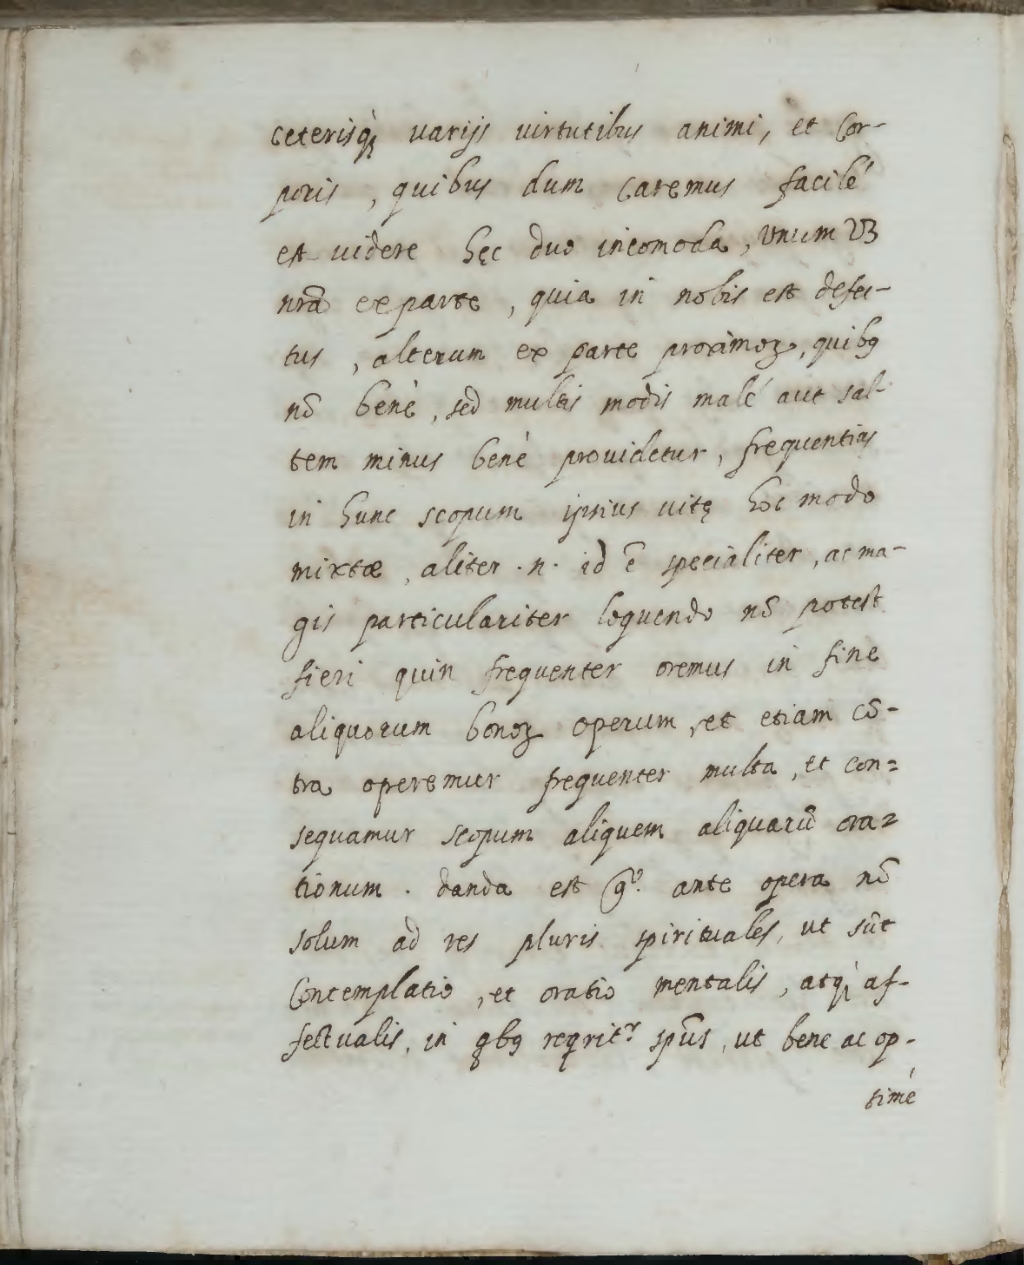 ceterisq; varijs virtutibus animi, et Cor-
poris, quibus dum caremus facilé
est videre hęc duo incomoda, vnum vꝫ
nrã ex parte, quia in nobis est defec-
tus, alterum ex parte proximoꝝ, quibꝰ
nõ bené, sed multis modis malé aut sal-
tem minus bené providetur, frequentius
in hunc scopum ipsius vitę hoc modo
mixtæ, aliter .n. id ẽ specialiter, ac ma-
gis particulariter loquendo nõ potest
fieri quin frequenter oremus in fine
aliquorum bonoꝝ operum, et etiam cõ-
tra operemur frequenter multa, et con=
sequamur scopum aliquem aliquarũ ora=
tionum. danda est gͦ. ante opera nõ
solum ad res pluris spirituales, ut sũt
Contemplatio, et oratio mentalis, atq; af-
fectualis, in qbꝰ reqritʳ spũs, ut bene ac op-
timé